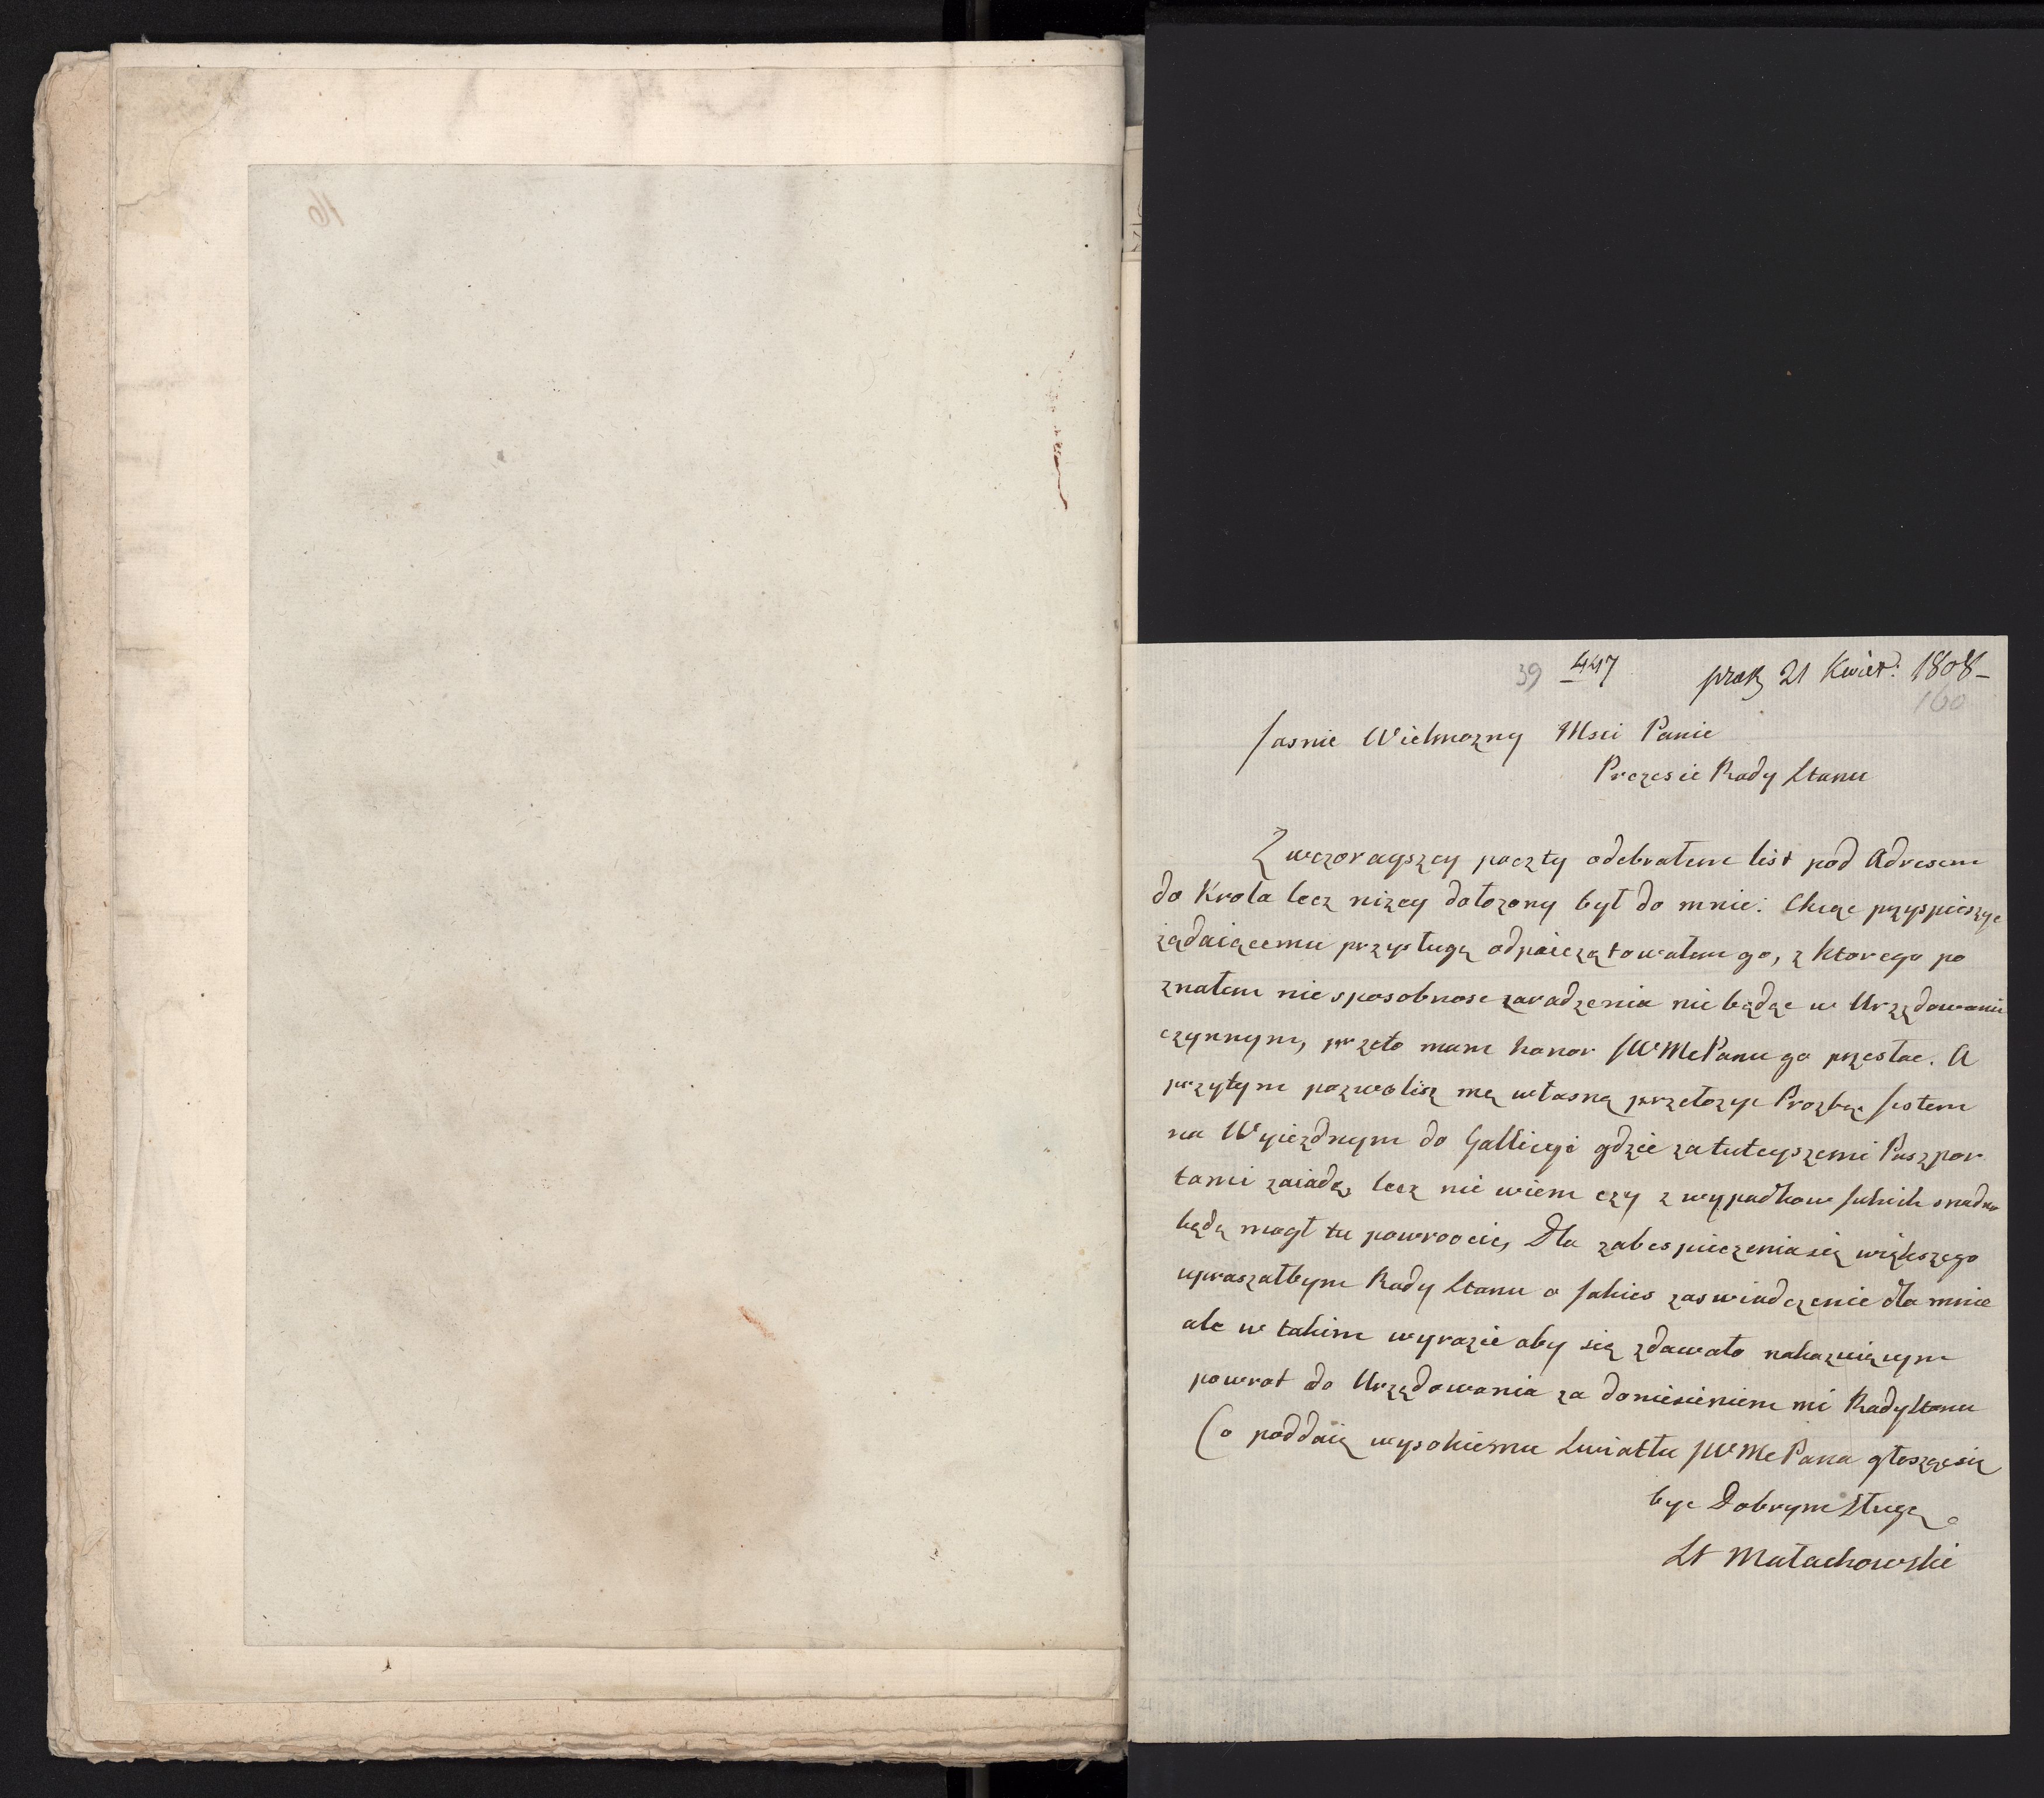 39 447 prez 21 Kwiet: 1808 –
160
Jasnie Wielmozny Msci Panie
Prezesie Rady Stanu
Z wczorayszey poczty odebrałem list pod Adresem
do Krola lecz niżey dołozony był do mnie. Chcąc przyspieszyc
żądaiącemu przysługę odpieczętowałem go, z ktorego po
znałem niesposobnosc zaradzenia nie będąc w Urzędowaniu
czynnym, przeto mam honor JWMcPanu go przesłac. A
przytym pozwolisz mą własną przełozyc Prozbę. Jestem
na Wyiezdnym do Gallicyi gdzie za tuteyszemi Paszpor
tami zaiadę, lecz nie wiem czy z wypadkow Jakich snadno
będę mogł tu powroocic, Dla zabespieczenia się większego
upraszałbym Rady Stanu o Jakies zaswiadczenie dla mnie
ale w takim wyrazie aby się zdawało nakazuiącym
powrot do Urzędowania za doniesieniem mi Rady Stanu
Co poddaię wysokiemu Swiatłu JWMcPana głosząc się
byc Dobrym Sługą
St Małachowski
16